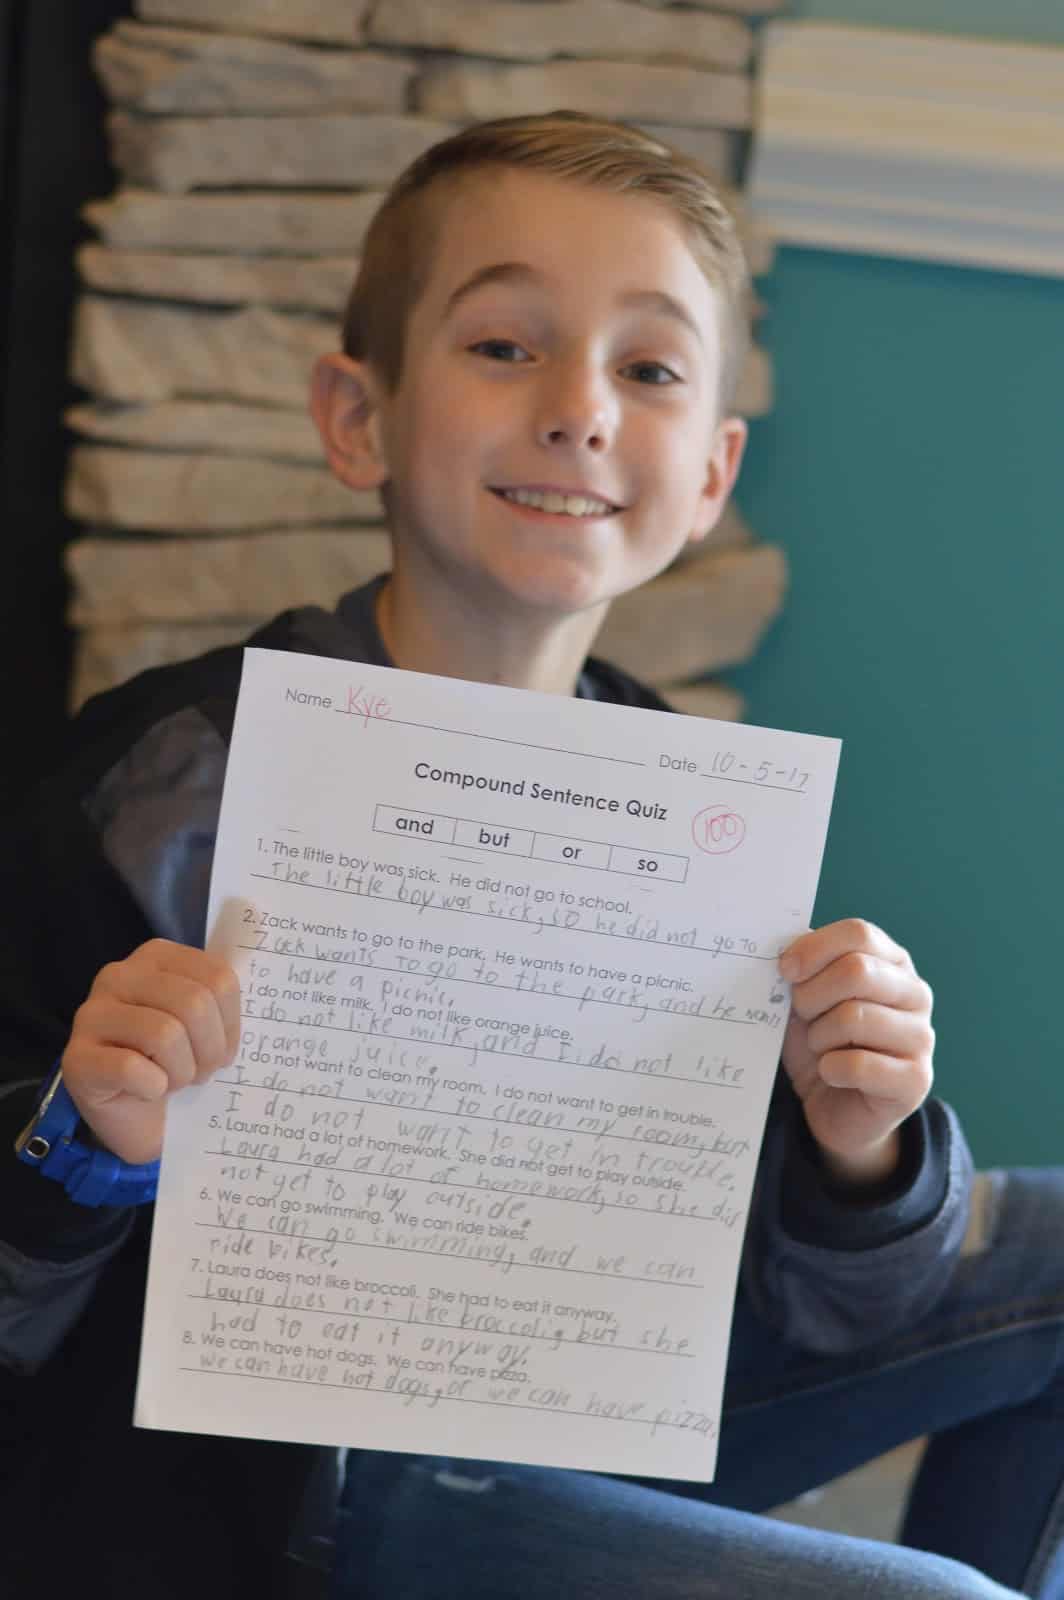 Name Kye
Date 10-5-17
Compound Sentence Quiz
100
and but or so
1. The little boy was sick. He did not go to school.
The little boy was sick, so he did not go to
2. Zack wants to go to the park. He wants to have a picnic.
Zack wants to go to the park, and he wants
to have a picnic.
I do not like milk. I do not like orange juice.
I do not like milk, and I do not like
orange juice.
I do not want to clean my room. I do not want to get in trouble.
I do not want to clean my room, but
I do not want to get in trouble.
5. Laura had a lot of homework. She did not get to play outside.
Laura had a lot of homework, so she did
not get to play outside.
6. We can go swimming. We can ride bikes.
We can go swimming, and we can
ride bikes.
7. Laura does not like broccoli. She had to eat it anyway.
Laura does not like broccoli, but she
had to eat it anyway.
8. We can have hot dogs. We can have pizza.
We can have hot dogs, or we can have pizza.